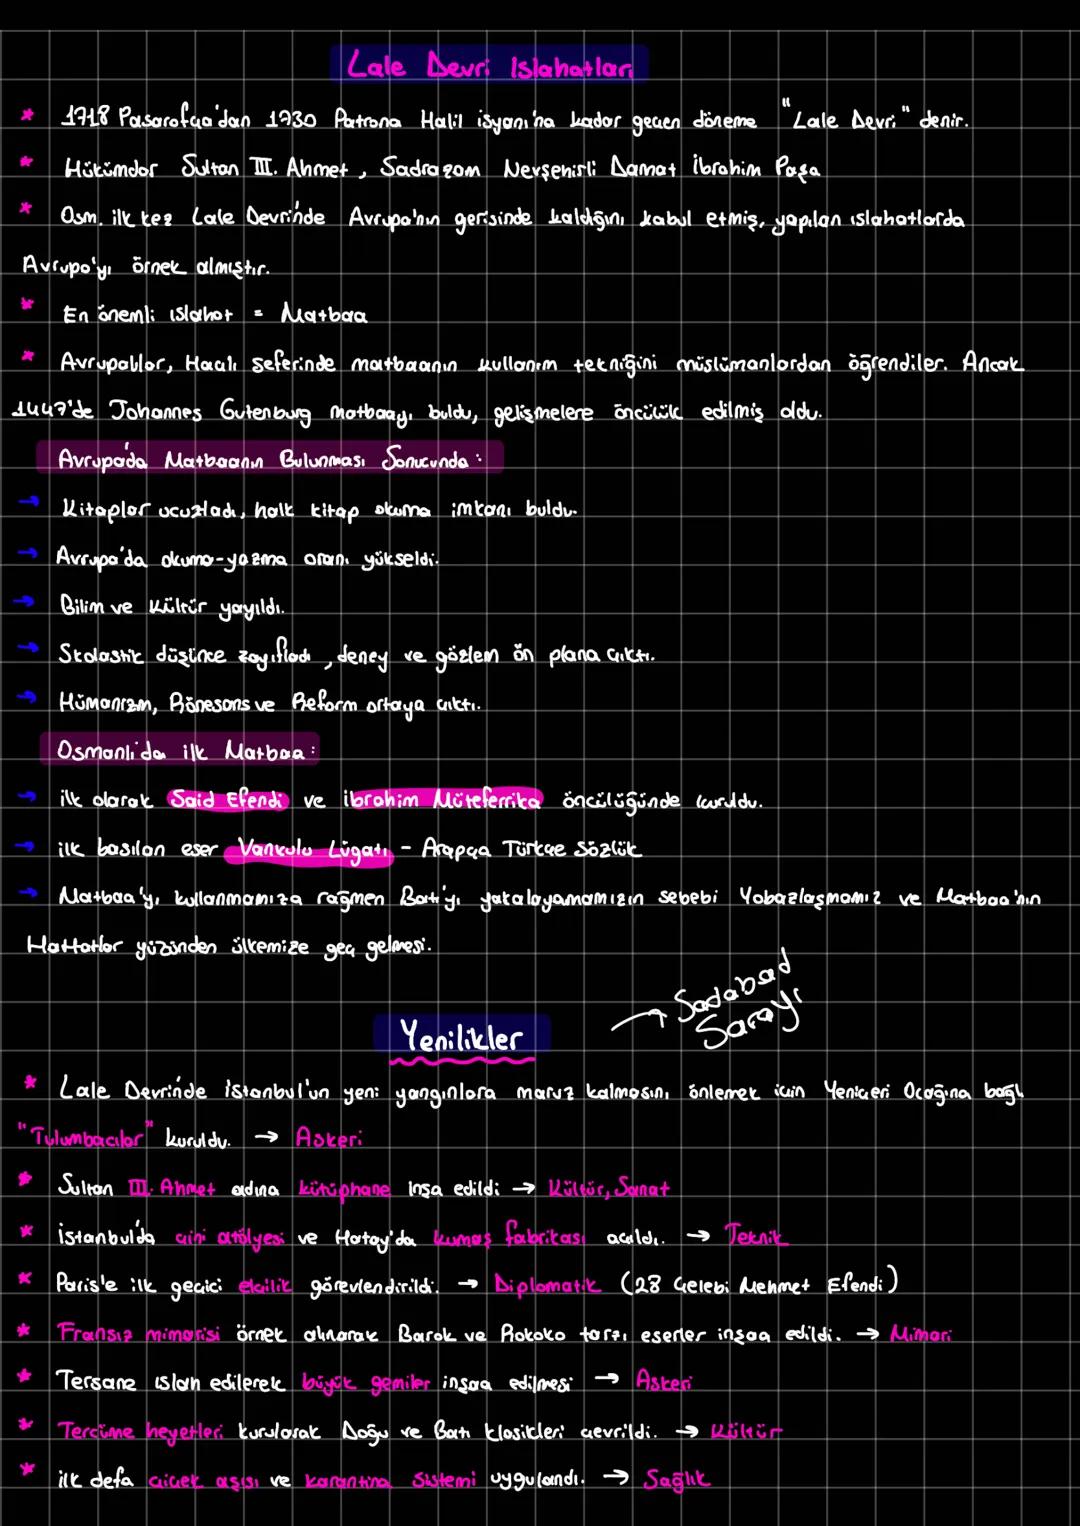 Lale Devri Islahatları
* 1718 Pasarofça'dan 1730 Patrona Halil isyanı'na kadar geçen döneme "Lale Devri" denir.
* Hükümdar Sultan III. Ahmet, Sadrazam Nevşehirli Damat İbrahim Paşa
* Osm. ilk kez Lale Devri'nde Avrupa'nın gerisinde kaldığını kabul etmiş, yapılan ıslahatlarda
Avrupa'yı örnek almıştır.
* En önemli ıslahat = Matbaa
* Avrupalılar, Haçlı seferinde matbaanın kullanım tekniğini müslümanlardan öğrendiler. Ancak
1447'de Johannes Gutenburg matbaayı buldu, gelişmelere öncülük edilmiş oldu.
Avrupa'da Matbaanın Bulunması Sonucunda:
→ Kitaplar ucuzladı, halk kitap okuma imkanı buldu.
→ Avrupa'da okuma-yazma oranı yükseldi.
→ Bilim ve Kültür yayıldı.
→ Skolastik düşünce zayıfladı, deney ve gözlem ön plana çıktı.
→ Hümanizm, Rönesans ve Reform ortaya çıktı.
Osmanlı'da ilk Matbaa:
→ ilk olarak Said Efendi ve ibrahim Müteferrika öncülüğünde kuruldu.
→ ilk basılan eser Vankulu Lügatı - Arapça Türkçe Sözlük
→ Matbaa'yı kullanmamıza rağmen Batı'yı yakalayamamızın sebebi Yobazlaşmamız ve Matbaa'nın
Hattatlar yüzünden ülkemize geç gelmesi.
→ Sadabad
Sarayı
Yenilikler
* Lale Devri'nde istanbul'un yeni yangınlara maruz kalmasını önlemek için Yeniçeri Ocağına bağlı
"Tulumbacılar" kuruldu. → Askeri
* Sultan III. Ahmet adına kütüphane inşa edildi → Kültür, Sanat
* istanbul'da çini atölyesi ve Hatay'da kumaş fabrikası açıldı. → Teknik
* Paris'e ilk geçici elçilik görevlendirildi. → Diplomatik (28 Çelebi Mehmet Efendi)
* Fransız mimarisi örnek alınarak Barok ve Rokoko tarzı eserler inşaa edildi. → Mimari
* Tersane ıslah edilerek büyük gemiler inşaa edilmesi → Askeri
* Tercüme heyetleri kurularak Doğu ve Batı klasikleri çevrildi. → Kültür
* ilk defa çiçek aşısı ve karantina sistemi uygulandı. → Sağlık